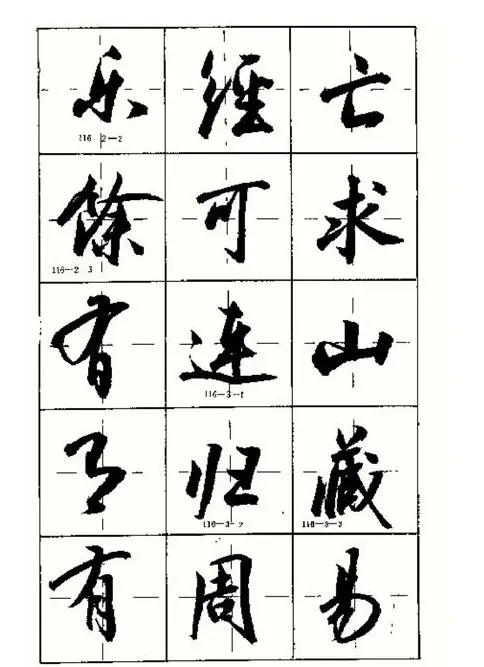 乐經亡
116 2-2
餘可求
116-2 3
有連山
116-3-1
有归藏
116-3-2 116-3-3
有周易